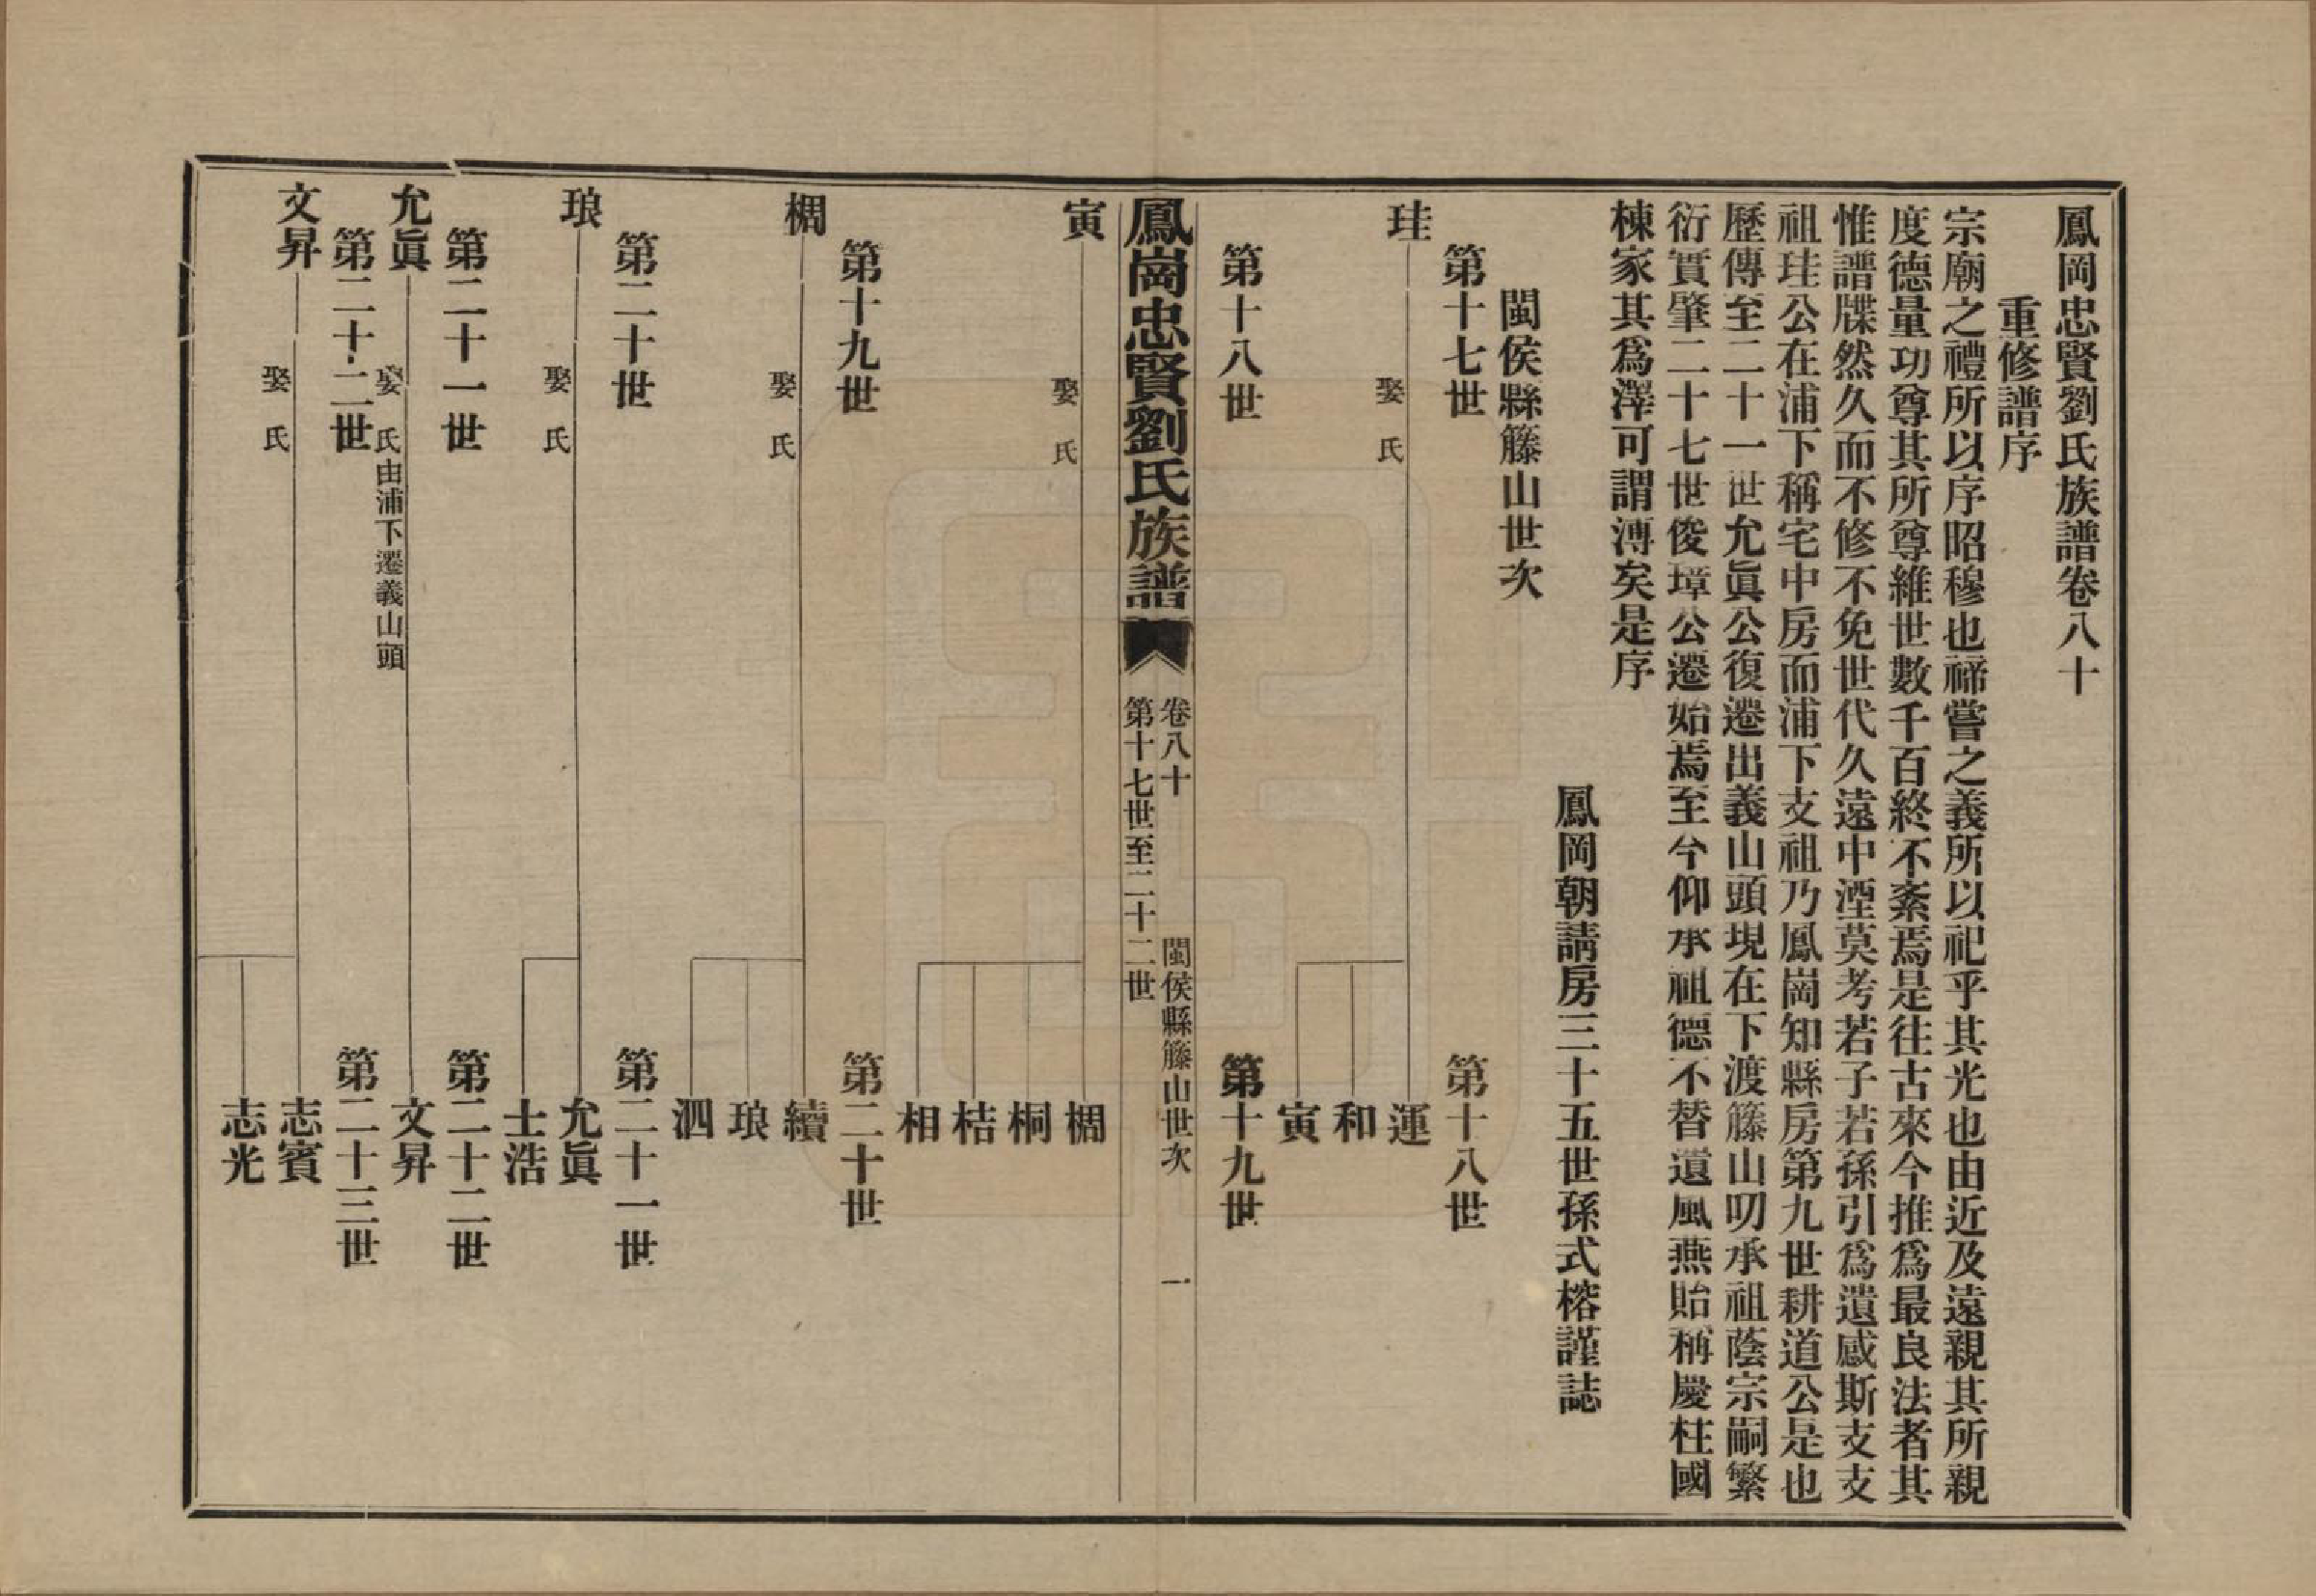 鳳岡忠賢劉氏族譜卷八十
重修譜序
宗廟之禮所以序昭穆也禘嘗之義所以祀乎其光也由近及遠親其所親
度德量功尊其所尊維世數千百終不紊焉是往古來今推爲最良法者其
惟譜牒然久而不修不免世代久遠中湮莫考若子若孫引爲遺感斯支支
祖珪公在浦下稱宅中房而浦下支祖乃鳳崗知縣房第九世耕道公是也
歷傳至二十一世允眞公復遷出義山頭現在下渡籐山叨承祖蔭宗嗣繁
衍實肇二十七世俊璋公遷始焉至今仰承祖德不替遺風燕貽稱慶柱國
棟家其爲澤可謂溥矣是序
鳳岡朝請房三十五世孫式榕謹誌
閩侯縣籐山世次
第十七世 第十八世
珪 娶 氏 運
和
寅
第十八世 第十九世
鳳崗忠賢劉氏族譜 卷八十 閩侯縣籐山世次 一
第十七世至二十二世
寅 娶 氏 椆
桐
桔
相
第十九世 第二十世
椆 娶 氏 續
琅
泗
第二十世 第二十一世
琅 娶 氏 允眞
士浩
第二十一世 第二十二世
允眞 娶 氏由浦下遷義山頭 文昇
第二十二世 第二十三世
文昇 娶 氏 志賓
志光